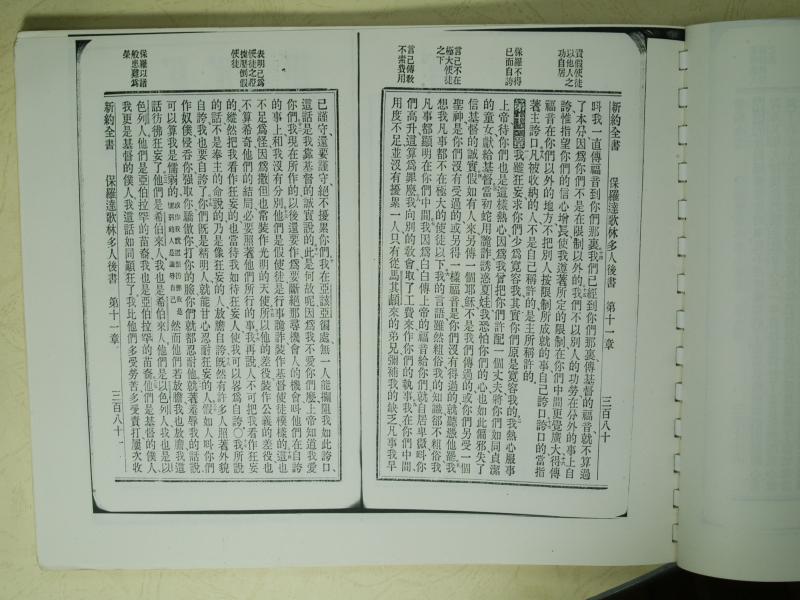 責假使徒
以他人之
功自居
保羅不得
已而自誇
言己不在
極大使徒
之下
言己傳教
不需費用
新約全書　保羅達歌林多人後書　第十一章　三百八十
叫我一直傳福音到你們那裏我們已經到你們那裏傳基督的福音就不算過
了本分因為你們不是在限制以外的我們不以別人的功勞在分外的事上自
誇惟指望你們的信心增長使我遵著所定的限制在你們中間更覺廣大得傳
福音在你們以外的地方不把別人按限制所成就的事自己誇口誇口的當指
著主誇口凡被收納的人不是自己稱許的是主所稱許的
第十一章我雖狂妄求你們少為寬容我其實你們原是寬容我的我熱心服事
上帝待你們也是這樣熱心因為我曾把你們許配一個丈夫將你們如同貞潔
的童女獻給基督當初蛇用詭詐誘惑夏娃我恐怕你們的心也如此偏邪失了
信基督的誠實假如有人來另傳一個耶穌不是我們傳過的或你們另受一個
聖神是你們沒有受過的或另得一樣福音是你們沒有得過的就聽憑他罷我
想我凡事都不在極大的使徒以下我的言語雖然粗俗我的知識卻不粗俗我
凡事都顯明在你們中間我因為白白傳上帝的福音給你們就自居卑微叫你
們高升這算為罪麼我向別的教會取了工費來作你們的執事我在你們中間
用度不足並沒有擾累一人只有從馬其頓來的弟兄彌補我的缺乏凡事我早
表明己為
使徒之證
據壓倒假
使徒
保羅以諸
般患難為
榮
已謹守還要謹守絕不擾累你們我在亞該亞省處無一人能攔阻我如此誇口
這話是我靠基督的誠實說的此是何故呢因為我不愛你們麼上帝知道我愛
你們我現在所作的以後還要作為要斷絕那尋機會人的機會叫他們在自誇
的事上和我沒有分別他們是假使徒是行事詭詐裝作基督使徒模樣的這也
不足為怪因為撒但也常裝作光明的天使所以他的差役裝作公義的差役也
不算希奇他們的結局必要照著他們所行的事我再說人不可把我看作狂妄
的縱然把我看作狂妄的也當待我如待狂妄人使我可以畧為自誇○我所說
的話不是奉主的命說的乃是像狂妄的人放膽自誇既然有許多人照著外貌
自誇我也要自誇了你們既是精明人就能甘心忍耐狂妄的人假如人叫你們
作奴僕侵吞你強取你驕傲你打你的臉你們就都忍耐他就著羞辱我的話說
可以算我是懦弱的然而他們若放膽我也放膽我這
話彷彿狂妄了他們是希伯來人我也是希伯來人他們是以色列人我也是以
色列人他們是亞伯拉罕的苗裔我也是亞伯拉罕的苗裔他們是基督的僕人
我更是基督的僕人我這話如同顛狂了我比他們多受勞苦多受責打屢次收
新約全書　保羅達歌林多人後書　第十一章　三百八十一